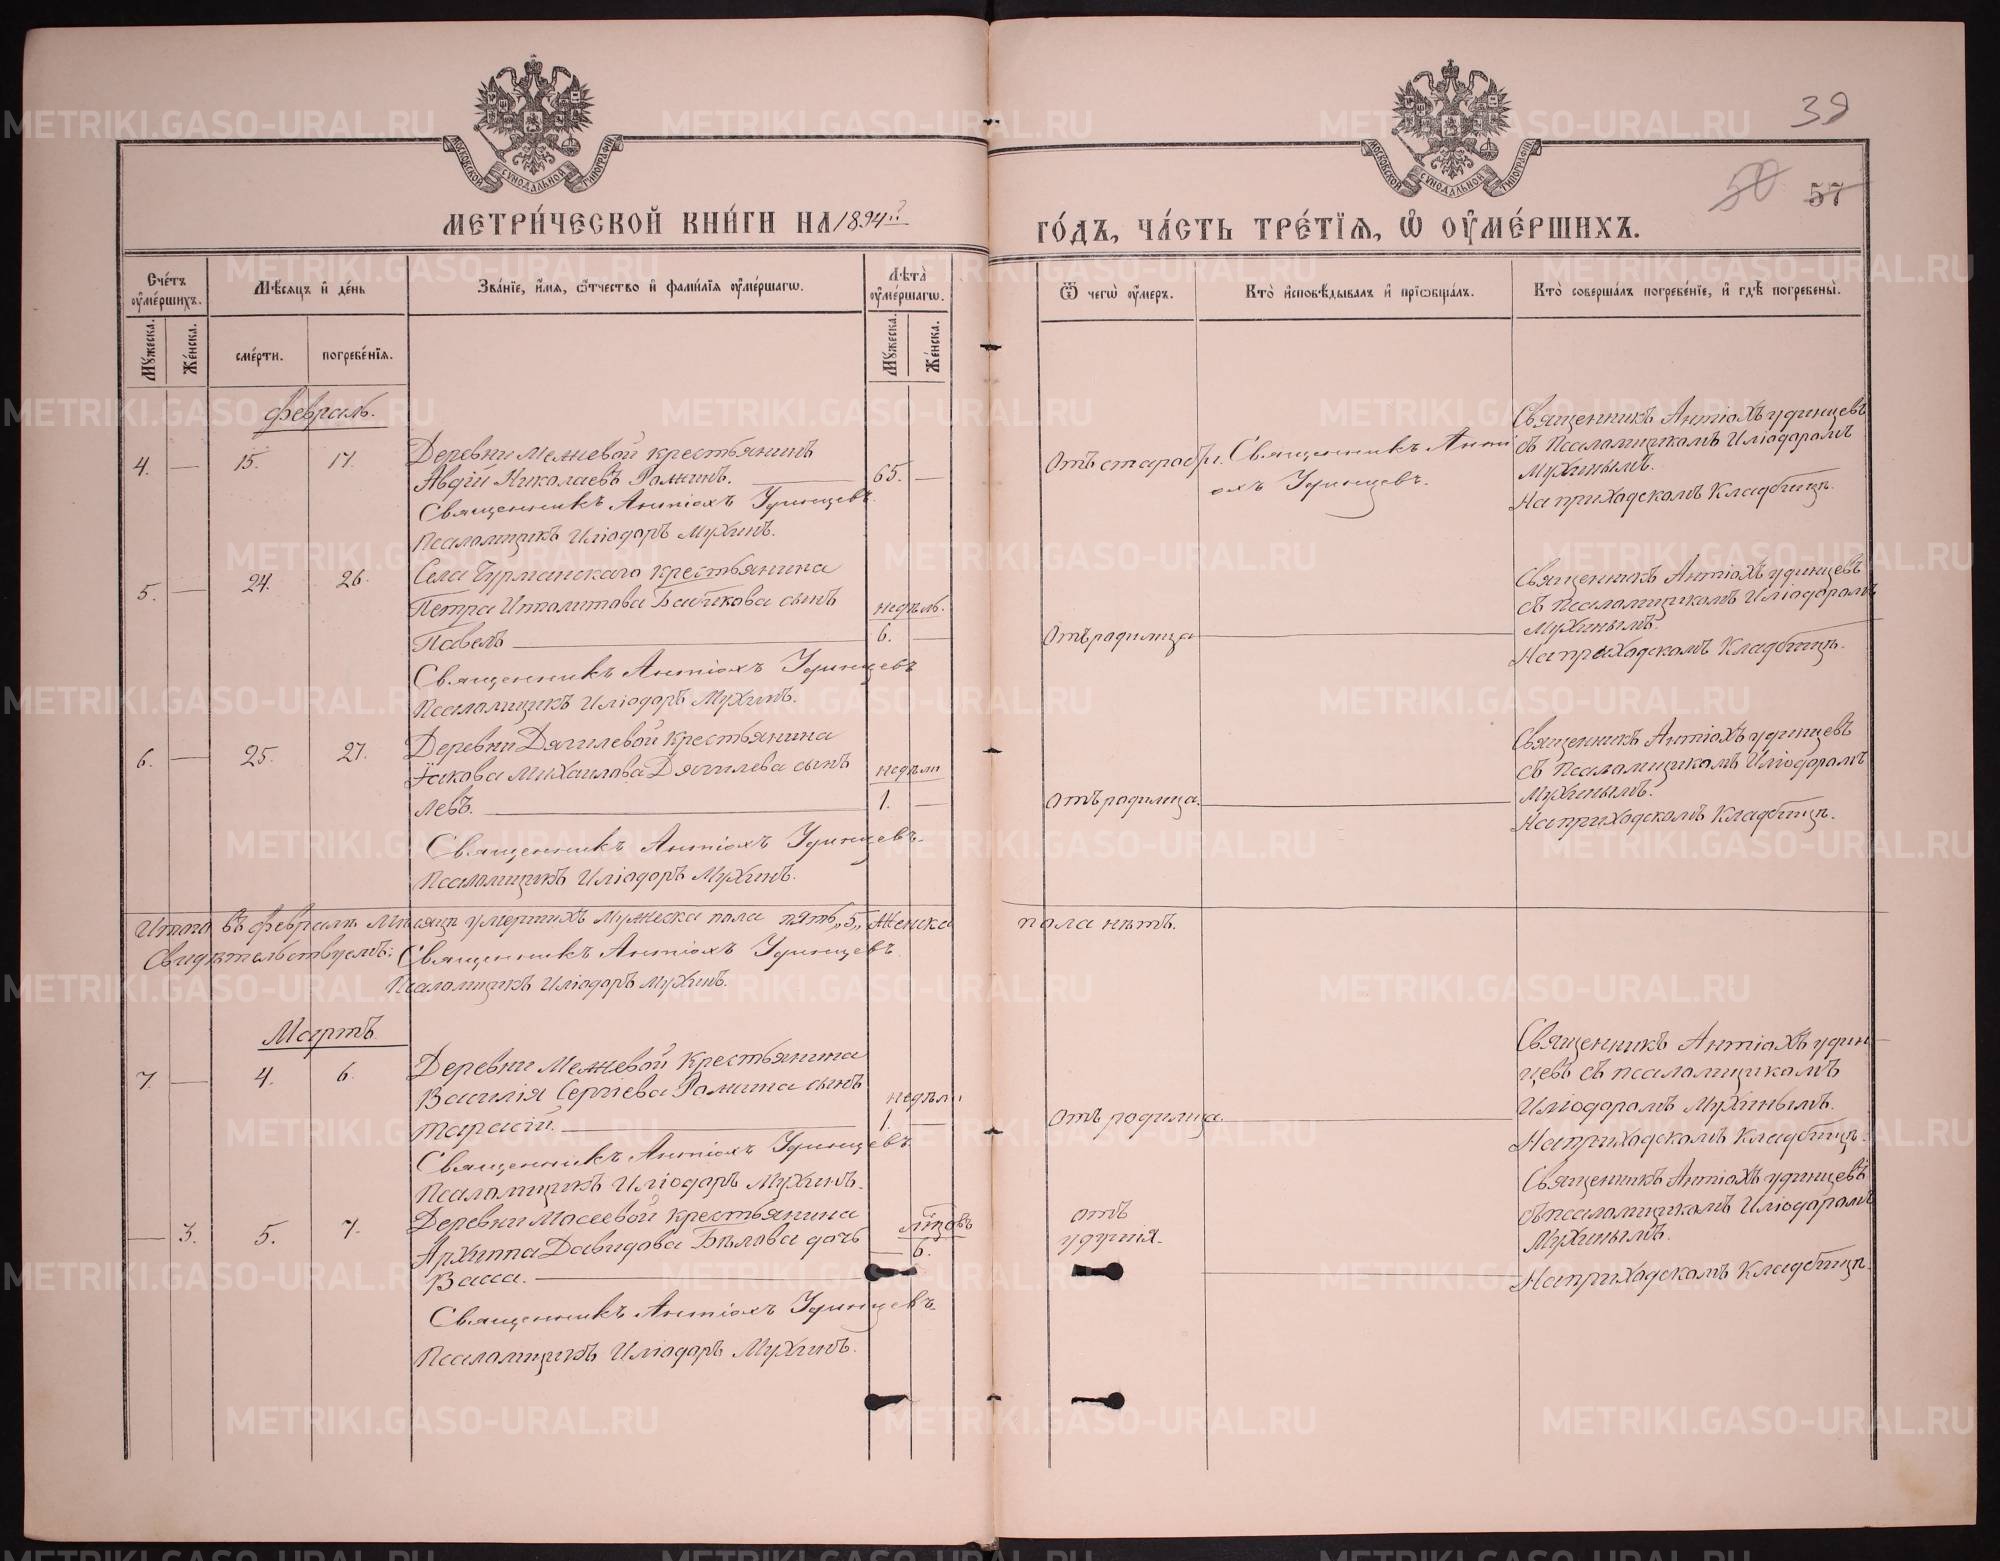 39
50 57
МОСКОВСКОЙ СѴНОДАЛЬНОЙ ТИПОГРАФІИ
МОСКОВСКОЙ СѴНОДАЛЬНОЙ ТИПОГРАФІИ
МЕТРИ́ЧЕСКОЙ КНИ́ГИ НА 1894й ГО́ДЪ, ЧА́СТЬ ТРЕ́ТІѦ, Ѡ ОУ҆МЕ́РШИХЪ.
Сче́тъ оу҆ме́ршихъ.
Мꙋ́жеска.
Же́нска.
Мѣ́сяцъ и҆ де́нь
сме́рти.
погребе́нїѧ.
Зва́нїе, и҆́мѧ, ѻ҆́тчество и҆ фами́лїѧ оу҆ме́ршагѡ.
Лѣта̀ оу҆ме́ршагѡ.
Мꙋ́жеска.
Же́нска.
Ѿ чегѡ̀ оу҆́меръ.
Кто̀ и҆сповѣ́дывалъ и҆ прїѡбща́лъ.
Кто̀ соверша́лъ погребе́нїе, и҆ гдѣ̀ погребены̀.
Февраль.
4. — 15. 17. Деревни Межевой крестьянинъ
Авдій Николаевъ Роминъ. 65. —
Священникъ Антіохъ Удинцевъ.
Псаломщикъ Иліодоръ Мухинъ.
Отъ старости. Священникъ Анті
охъ Удинцевъ.
Священникъ Антіохъ Удинцевъ
съ Псаломщикомъ Иліодоромъ
Мухинымъ.
На приходскомъ Кладбищѣ.
5. — 24. 26. Села Чурманскаго крестьянина
Петра Ипполитова Байнкова сынъ недѣль.
Павелъ 6. —
Священникъ Антіохъ Удинцевъ
Псаломщикъ Иліодоръ Мухинъ.
Отъ родимца
Священникъ Антіохъ Удинцевъ
съ Псаломщикомъ Иліодоромъ
Мухинымъ.
На приходскомъ Кладбищѣ.
6. — 25. 27. Деревни Дягилевой крестьянина
Іакова Михаилова Дягилева сынъ недѣли
Левъ. 1. —
Священникъ Антіохъ Удинцевъ.
Псаломщикъ Иліодоръ Мухинъ.
Отъ родимца.
Священникъ Антіохъ Удинцевъ
съ Псаломщикомъ Иліодоромъ
Мухинымъ.
На приходскомъ Кладбищѣ.
Итого въ февралѣ мѣсяцѣ умершихъ мужеска пола пять „5„ Женска пола нѣтъ.
Свидѣтельствуемъ: Священникъ Антіохъ Удинцевъ.
Псаломщикъ Иліодоръ Мухинъ.
Мартъ
7. — 4. 6. Деревни Межевой крестьянина
Василія Сергіева Ромина сынъ недѣли
Тарасій. 1. —
Священникъ Антіохъ Удинцевъ.
Псаломщикъ Иліодоръ Мухинъ.
Отъ родимца.
Священникъ Антіохъ Удин
цевъ съ псаломщикомъ
Иліодоромъ Мухинымъ.
На приходскомъ Кладбищѣ.
— 3. 5. 7. Деревни Мосеевой крестьянина лѣтовъ
Архиппа Давидова Бѣлова дочь — 6.
Васса.
Священникъ Антіохъ Удинцевъ.
Псаломщикъ Иліодоръ Мухинъ.
отъ
удушія.
Священникъ Антіохъ Удинцевъ
съ псаломщикомъ Иліодоромъ
Мухинымъ.
На приходскомъ Кладбищѣ.
METRIKI.GASO-URAL.RU